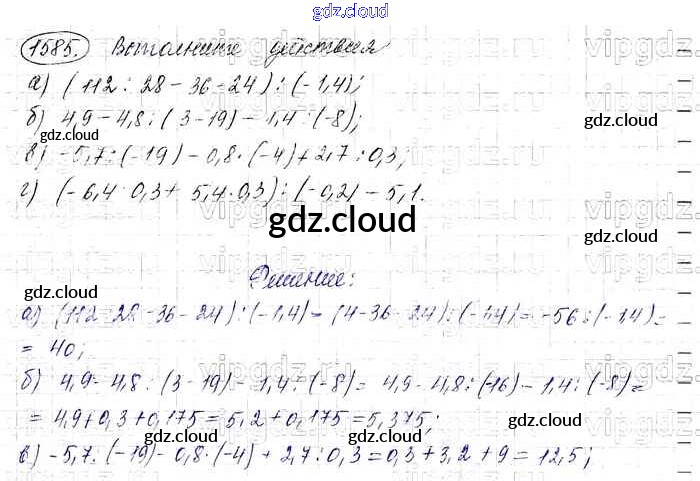 gdz.cloud
1585. Выполните действия
gdz.cloud
а) (112 : 28 - 36 - 24) : (-1,4);
б) 4,9 - 4,8 : (3 - 19) - 1,4 : (-8);
gdz.cloud gdz.cloud
в) -5,7 : (-19) - 0,8 · (-4) + 2,7 : 0,3;
г) (-6,4 · 0,3 + 5,4 · 0,3) : (-0,2) - 5,1.
gdz.cloud
Решение:
gdz.cloud gdz.cloud
а) (112 : 28 - 36 - 24) : (-1,4) = (4 - 36 - 24) : (-1,4) = -56 : (-1,4) =
= 40;
gdz.cloud
б) 4,9 - 4,8 : (3 - 19) - 1,4 : (-8) = 4,9 - 4,8 : (-16) - 1,4 : (-8) =
= 4,9 + 0,3 + 0,175 = 5,2 + 0,175 = 5,375;
gdz.cloud gdz.cloud
в) -5,7 : (-19) - 0,8 · (-4) + 2,7 : 0,3 = 0,3 + 3,2 + 9 = 12,5;
gdz.cloud